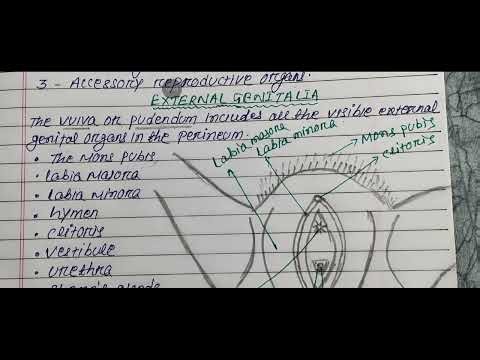 3 - Accessory reproductive organs.
EXTERNAL GENITALIA
The vulva or pudendum includes all the visible external
genital organs in the perineum.
• The mons pubis
• labia majora
• labia minora
• hymen
• clitoris
• vestibule
• urethra
Labia majora
Labia minora
Mons pubis
clitoris